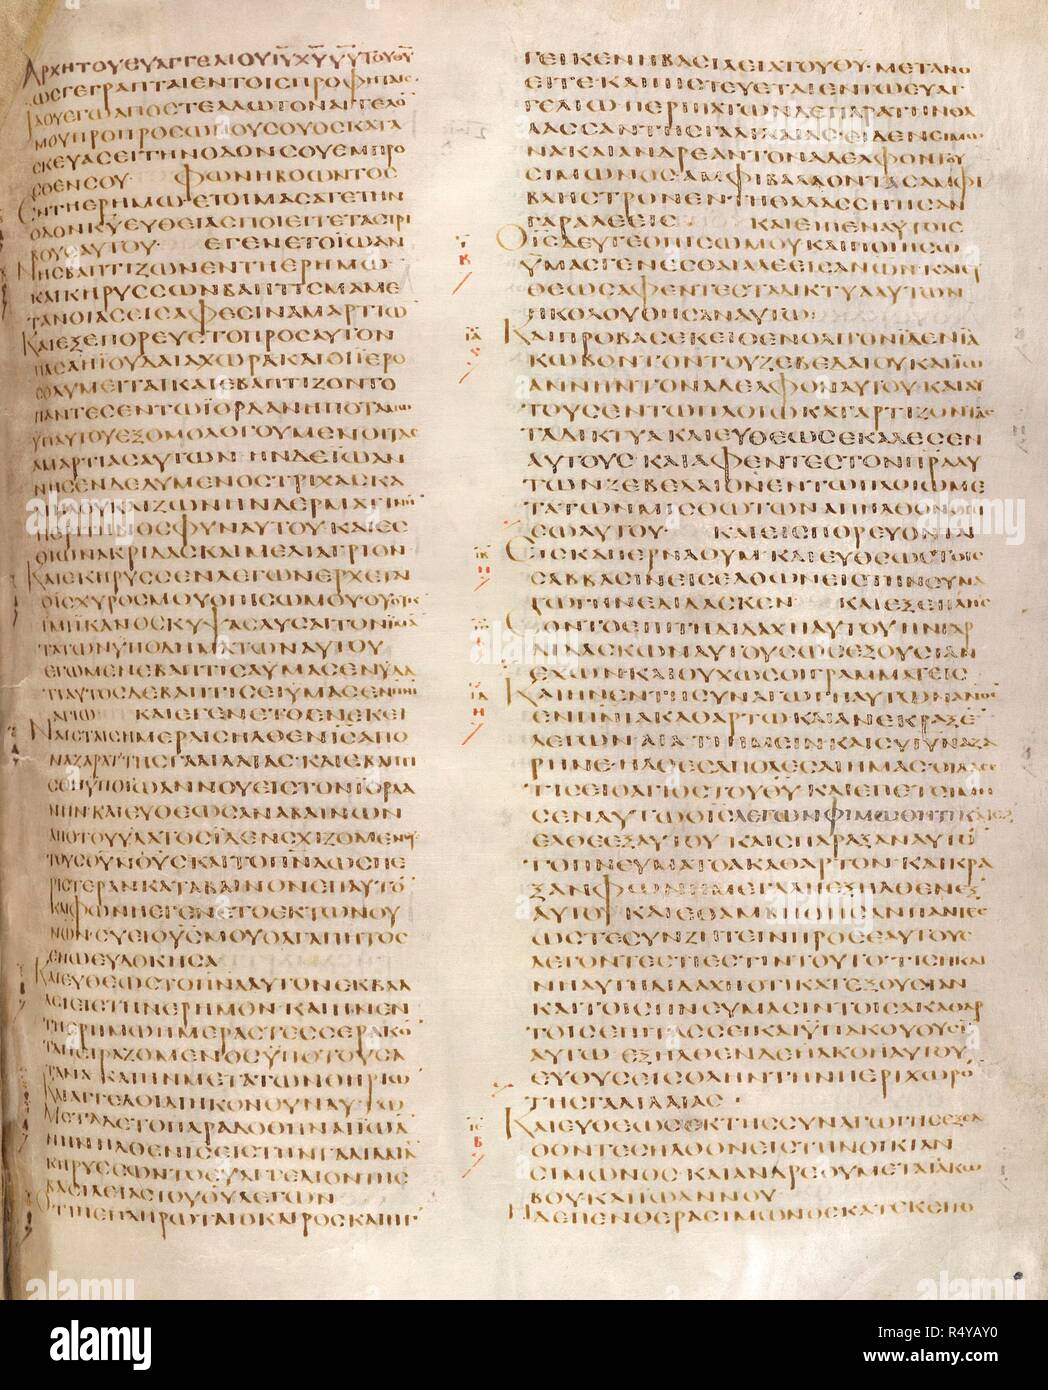 ΑΡΧΗΤΟΥΕΥΑΓΓΕΛΙΟΥΙΥΧΥΥΥΤΟΥΘΥ
ΩΣΓΕΓΡΑΠΤΑΙΕΝΤΟΙΣΠΡΟΦΗΤΑΙΣ·
ΙΔΟΥΕΓΩΑΠΟΣΤΕΛΛΩΤΟΝΑΓΓΕΛΟ
ΜΟΥΠΡΟΠΡΟΣΩΠΟΥΣΟΥΟΣΚΑΤΑ
ΣΚΕΥΑΣΕΙΤΗΝΟΔΟΝΣΟΥΕΜΠΡΟ
ΣΘΕΝΣΟΥ· ΦΩΝΗΒΟΩΝΤΟΣ
ΕΝΤΗΕΡΗΜΩΕΤΟΙΜΑΣΑΤΕΤΗΝ
ΟΔΟΝΚΥΕΥΘΕΙΑΣΠΟΙΕΙΤΕΤΑΣΤΡΙ
ΒΟΥΣΑΥΤΟΥ· ΕΓΕΝΕΤΟΪΩΑΝ
ΝΗΣΒΑΠΤΙΖΩΝΕΝΤΗΕΡΗΜΩ·
ΚΑΙΚΗΡΥΣΣΩΝΒΑΠΤΙΣΜΑΜΕ
ΤΑΝΟΙΑΣΕΙΣΑΦΕΣΙΝΑΜΑΡΤΙΩ
ΚΑΙΕΞΕΠΟΡΕΥΕΤΟΠΡΟΣΑΥΤΟΝ
ΠΑΣΑΗΪΟΥΔΑΙΑΧΩΡΑΚΑΙΟΙΪΕΡΟ
ΣΟΛΥΜΕΙΤΑΙΚΑΙΕΒΑΠΤΙΖΟΝΤΟ
ΠΑΝΤΕΣΕΝΤΩΪΟΡΔΑΝΗΠΟΤΑΜΩ
ΫΠΑΥΤΟΥΕΞΟΜΟΛΟΓΟΥΜΕΝΟΙΤΑΣ
ΑΜΑΡΤΙΑΣΑΥΤΩΝ· ΗΝΔΕΪΩΑΝ
ΝΗΣΕΝΔΕΔΥΜΕΝΟΣΤΡΙΧΑΣΚΑ
ΜΗΛΟΥΚΑΙΖΩΝΗΝΔΕΡΜΑΤΙΝΗ
ΠΕΡΙΤΗΝΟΣΦΥΝΑΥΤΟΥΚΑΙΕΣ
ΘΙΩΝΑΚΡΙΔΑΣΚΑΙΜΕΛΙΑΓΡΙΟΝ
ΚΑΙΕΚΗΡΥΣΣΕΝΛΕΓΩΝΕΡΧΕΤΑΙ
ΟΪΣΧΥΡΟΣΜΟΥΟΠΙΣΩΜΟΥΟΥΟΥΚ
ΙΜΙΪΚΑΝΟΣΚΥΨΑΣΛΥΣΑΙΤΟΝΪΜΑ
ΤΑΤΩΝΫΠΟΔΗΜΑΤΩΝΑΥΤΟΥ
ΕΓΩΜΕΝΕΒΑΠΤΙΣΑΥΜΑΣΕΝΫΔΑ
ΤΙΑΥΤΟΣΔΕΒΑΠΤΙΣΕΙΥΜΑΣΕΝΠΝΙ
ΑΓΙΩ· ΚΑΙΕΓΕΝΕΤΟΕΝΕΚΕΙ
ΝΑΙΣΤΑΙΣΗΜΕΡΑΙΣΗΛΘΕΝΙΣΑΠΟ
ΝΑΖΑΡΑΤΤΗΣΓΑΛΙΛΑΙΑΣ·ΚΑΙΕΒΑΠΤΙ
ΣΘΗΥΠΟΪΩΑΝΝΟΥΕΙΣΤΟΝΪΟΡΔΑ
ΝΗΝ·ΚΑΙΕΥΘΕΩΣΑΝΑΒΑΙΝΩΝ
ΑΠΟΤΟΥΥΔΑΤΟΣΪΔΕΝΣΧΙΖΟΜΕΝΟΥΣ
ΤΟΥΣΟΥΝΟΥΣΚΑΙΤΟΠΝΑΩΣΠΕ
ΡΙΣΤΕΡΑΝΚΑΤΑΒΑΙΝΟΝΕΠΑΥΤΟ
ΚΑΙΦΩΝΗΕΓΕΝΕΤΟΕΚΤΩΝΟΥ
ΝΩΝ·ΣΥΕΙΟΥΣΜΟΥΟΑΓΑΠΗΤΟΣ
ΕΝΩΕΥΔΟΚΗΣΑ
ΚΑΙΕΥΘΕΩΣΤΟΠΝΑΑΥΤΟΝΕΚΒΑΛ
ΛΕΙΕΙΣΤΗΝΕΡΗΜΟΝ·ΚΑΙΗΝΕΝ
ΤΗΕΡΗΜΩΗΜΕΡΑΣΤΕΣΣΕΡΑΚΟ
ΤΑΠΕΙΡΑΖΟΜΕΝΟΣΫΠΟΤΟΥΣΑ
ΤΑΝΑ· ΚΑΙΗΝΜΕΤΑΤΩΝΘΗΡΙΩ
ΚΑΙΑΓΓΕΛΟΙΔΙΗΚΟΝΟΥΝΑΥΤΩ
ΜΕΤΑΔΕΤΟΠΑΡΑΔΟΘΗΝΑΙΪΩΑ
ΝΗΝΗΛΘΕΝΙΣΕΙΣΤΗΝΓΑΛΙΛΑΙΑ
ΚΗΡΥΣΣΩΝΤΟΕΥΑΓΓΕΛΙΟΝΤΗΣ
ΒΑΣΙΛΕΙΑΣΤΟΥΘΥΛΕΓΩΝ
ΟΤΙΠΕΠΛΗΡΩΤΑΙΟΚΑΙΡΟΣΚΑΙΗΓ·
ΓΕΙΚΕΝΗΒΑΣΙΛΕΙΑΤΟΥΘΥ·ΜΕΤΑΝΟ
ΕΙΤΕΚΑΙΠΙΣΤΕΥΕΤΑΙΕΝΤΩΕΥΑΓ
ΓΕΛΙΩ·ΠΕΡΙΠΑΤΩΝΔΕΠΑΡΑΤΗΝΘΑ
ΛΑΣΣΑΝΤΗΣΓΑΛΙΛΑΙΑΣΕΙΔΕΝΣΙΜΩ
ΝΑΚΑΙΑΝΔΡΕΑΝΤΟΝΑΔΕΛΦΟΝΤΟΥ
ΣΙΜΩΝΟΣΑΜΦΙΒΑΛΛΟΝΤΑΣΑΜΦΙ
ΒΛΗΣΤΡΟΝΕΝΤΗΘΑΛΑΣΣΗΗΣΑΝ
ΓΑΡΑΛΕΕΙΣ· ΚΑΙΕΙΠΕΝΑΥΤΟΙΣ
ΟΙΣΔΕΥΤΕΟΠΙΣΩΜΟΥΚΑΙΠΟΙΗΣΩ
ΫΜΑΣΓΕΝΕΣΘΑΙΑΛΕΕΙΣΑΝΩΝ·ΚΑΙΕΥ
ΘΕΩΣΑΦΕΝΤΕΣΤΑΔΙΚΤΥΑΑΥΤΩΝ
ΗΚΟΛΟΥΘΗΣΑΝΑΥΤΩ:
ΚΑΙΠΡΟΒΑΣΕΚΕΙΘΕΝΟΛΙΓΟΝΪΔΕΝΪΑ
ΚΩΒΟΝΤΟΝΤΟΥΖΕΒΕΔΑΙΟΥΚΑΙΪΩ
ΑΝΝΗΝΤΟΝΑΔΕΛΦΟΝΑΥΤΟΥ·ΚΑΙΑΥ
ΤΟΥΣΕΝΤΩΠΛΟΙΩΚΑΤΑΡΤΙΖΟΝΤΑΣ
ΤΑΔΙΚΤΥΑ·ΚΑΙΕΥΘΕΩΣΕΚΑΛΕΣΕΝ
ΑΥΤΟΥΣ·ΚΑΙΑΦΕΝΤΕΣΤΟΝΠΡΑΑΥ
ΤΩΝΖΕΒΕΔΑΙΟΝΕΝΤΩΠΛΟΙΩΜΕ
ΤΑΤΩΝΜΙΣΘΩΤΩΝΑΠΗΛΘΟΝΟΠΙ
ΣΩΑΥΤΟΥ· ΚΑΙΕΙΣΠΟΡΕΥΟΝΤΑΙ
ΕΙΣΚΑΠΕΡΝΑΟΥΜ·ΚΑΙΕΥΘΕΩΣΤΟΙΣ
ΣΑΒΒΑΣΙΝΕΙΣΕΛΘΩΝΕΙΣΤΗΝΣΥΝΑ
ΓΩΓΗΝΕΔΙΔΑΣΚΕΝ· ΚΑΙΕΞΕΠΛΗΣ
ΣΟΝΤΟΕΠΙΤΗΔΙΔΑΧΗΑΥΤΟΥΗΝΓΑΡ
ΔΙΔΑΣΚΩΝΑΥΤΟΥΣΩΣΕΞΟΥΣΙΑΝ
ΕΧΩΝ·ΚΑΙΟΥΧΩΣΟΙΓΡΑΜΜΑΤΕΙΣ
ΚΑΙΗΝΕΝΤΗΣΥΝΑΓΩΓΗΑΥΤΩΝΑΝΟΣ
ΕΝΠΝΙΑΚΑΘΑΡΤΩΚΑΙΑΝΕΚΡΑΞΕ
ΛΕΓΩΝ·ΕΑΤΙΗΜΕΙΝ·ΚΑΙΣΥΙΥΝΑΖΑ
ΡΗΝΕ·ΗΛΘΕΣΑΠΟΛΕΣΑΙΗΜΑΣ·ΟΙΔΑΣΕ
ΤΙΣΕΙΟΑΓΙΟΣΤΟΥΘΥ·ΚΑΙΕΠΕΤΙΜΗ
ΣΕΝΑΥΤΩΟΙΣΛΕΓΩΝΦΙΜΩΘΗΤΙΚΑΙΕΞ
ΕΛΘΕΕΞΑΥΤΟΥ· ΚΑΙΣΠΑΡΑΞΑΝΑΥΤΟ
ΤΟΠΝΕΥΜΑΤΟΑΚΑΘΑΡΤΟΝ·ΚΑΙΚΡΑ
ΞΑΝΦΩΝΗΜΕΓΑΛΗΕΞΗΛΘΕΝΕΞ
ΑΥΤΟΥ· ΚΑΙΕΘΑΜΒΗΘΗΣΑΝΠΑΝΤΕΣ
ΩΣΤΕΣΥΝΖΗΤΕΙΝΠΡΟΣΕΑΥΤΟΥΣ
ΛΕΓΟΝΤΕΣΤΙΕΣΤΙΝΤΟΥΤΟ·ΤΙΣΗΚΑΙ
ΝΗΑΥΤΗΔΙΔΑΧΗΟΤΙΚΑΤΕΞΟΥΣΙΑΝ
ΚΑΙΤΟΙΣΠΝΕΥΜΑΣΙΝΤΟΙΣΑΚΑΘΑΡ
ΤΟΙΣΕΠΙΤΑΣΣΕΙΚΑΙΫΠΑΚΟΥΟΥΣΙ
ΑΥΤΩ· ΕΞΗΛΘΕΝΔΕΗΑΚΟΗΑΥΤΟΥ
ΕΥΘΥΣΕΙΣΟΛΗΝΤΗΝΠΕΡΙΧΩΡΟ
ΤΗΣΓΑΛΙΛΑΙΑΣ·
ΚΑΙΕΥΘΕΩΣΕΚΤΗΣΣΥΝΑΓΩΓΗΣΕΞΕΛ
ΘΟΝΤΕΣΗΛΘΟΝΕΙΣΤΗΝΟΙΚΙΑΝ
ΣΙΜΩΝΟΣ·ΚΑΙΑΝΔΡΕΟΥΜΕΤΑΪΑΚΩ
ΒΟΥ·ΚΑΙΪΩΑΝΝΟΥ
ΗΔΕΠΕΝΘΕΡΑΣΙΜΩΝΟΣΚΑΤΕΚΕΙΤΟ
alamy
alamy
alamy
alamy
alamy
alamy
alamy
alamy
Image ID: R4YAY0
www.alamy.com